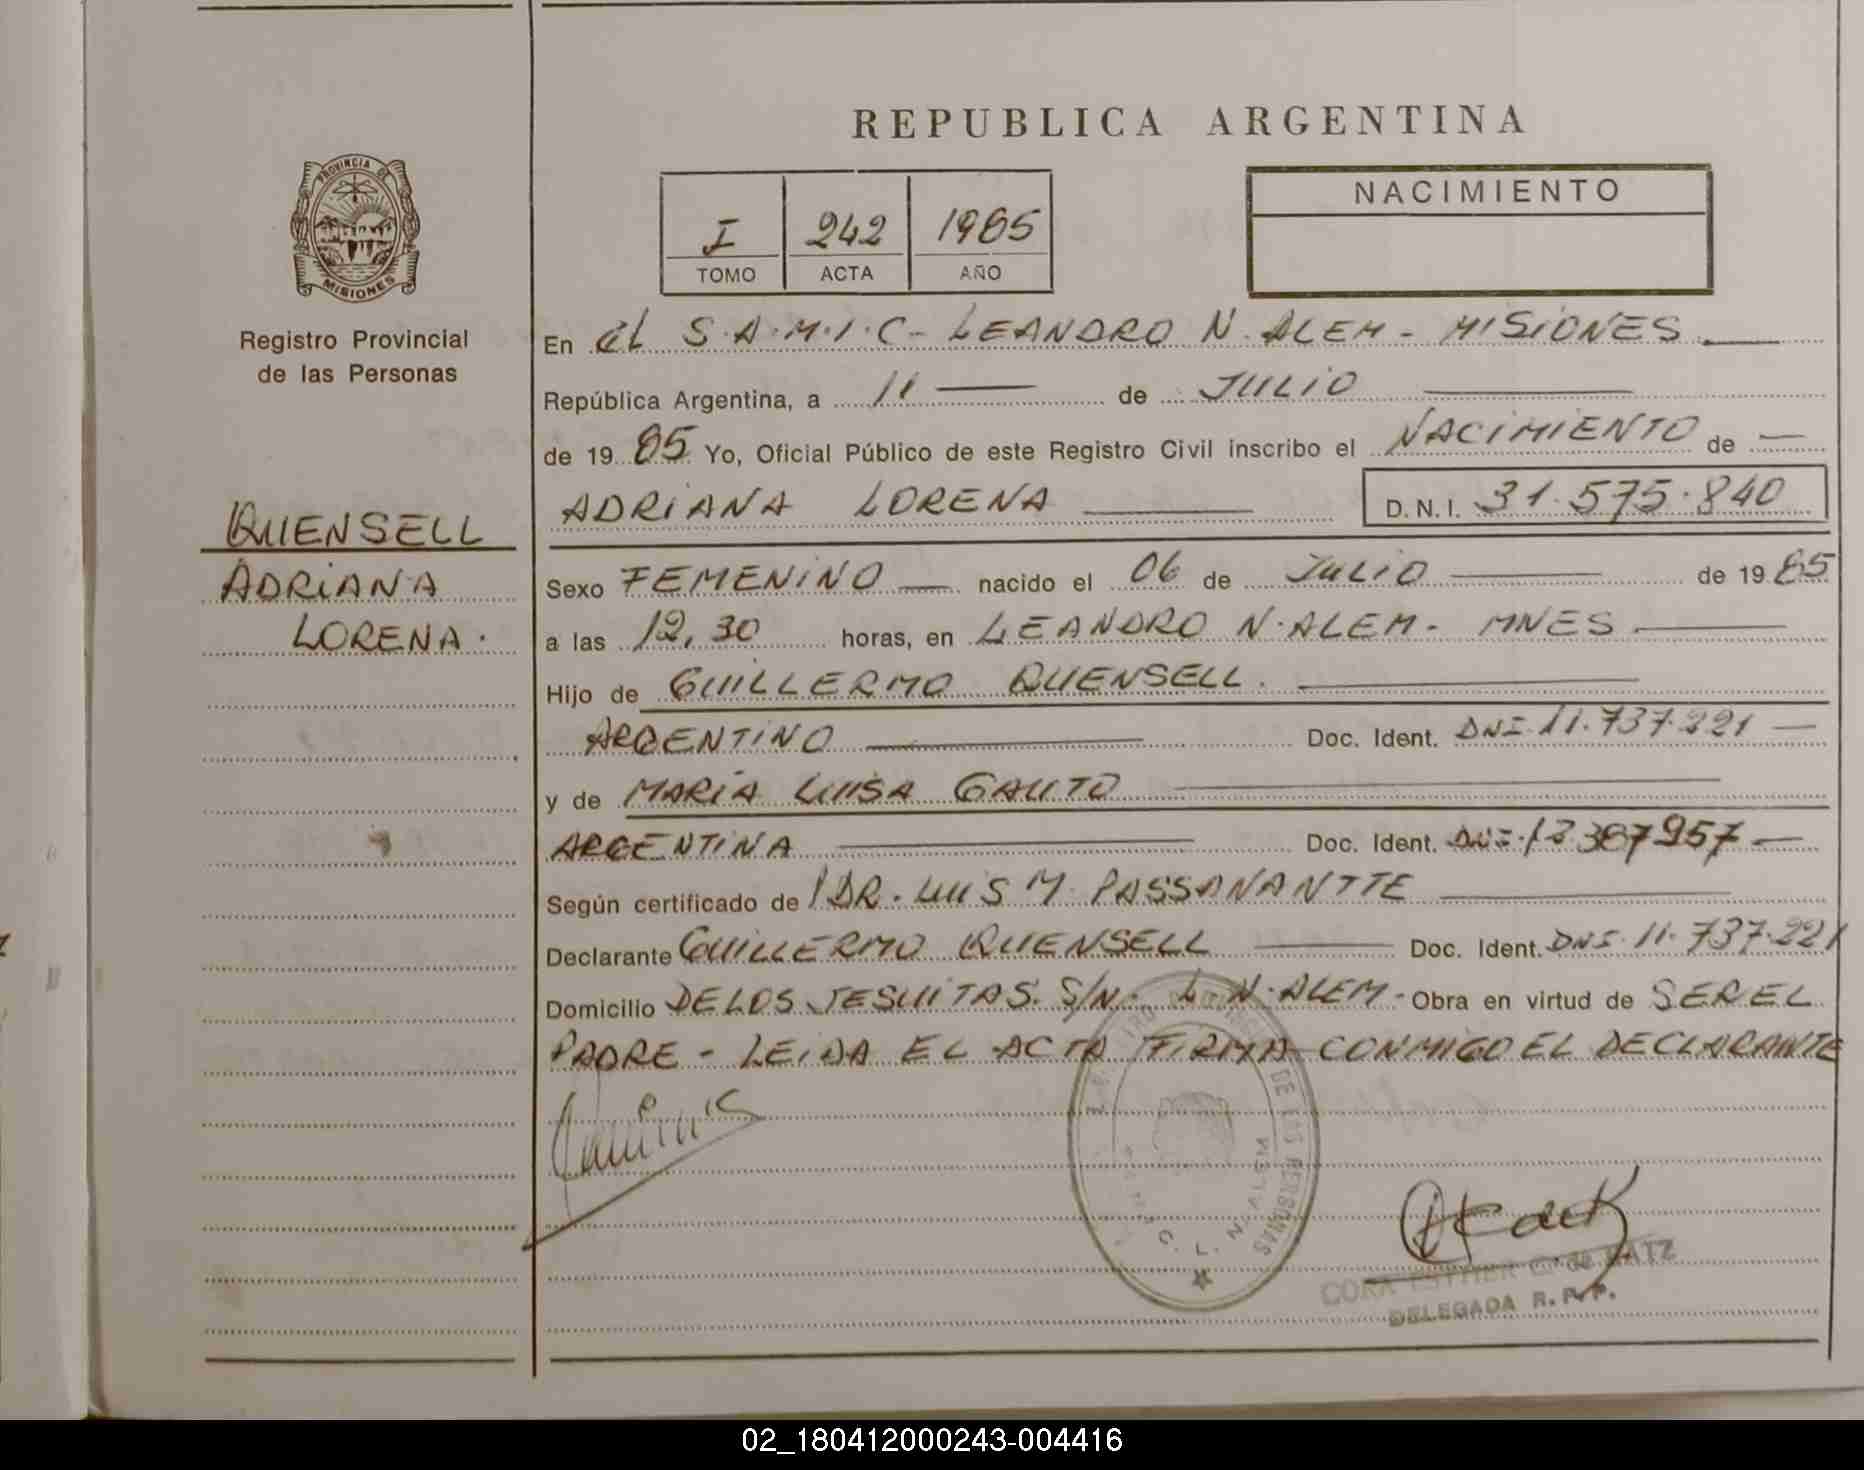 REPUBLICA ARGENTINA
PROVINCIA DE
MISIONES
Registro Provincial
de las Personas
I 242 1985
TOMO ACTA AÑO
NACIMIENTO
En el S.A.M.I.C - LEANDRO N. ALEM - MISIONES
República Argentina, a 11 de JULIO
de 1985 Yo, Oficial Público de este Registro Civil inscribo el NACIMIENTO de
ADRIANA LORENA D.N.I. 31.575.840
QUENSELL
ADRIANA
LORENA.
Sexo FEMENINO nacido el 06 de JULIO de 1985
a las 12,30 horas, en LEANDRO N. ALEM - MNES
Hijo de GUILLERMO QUENSELL.
ARGENTINO Doc. Ident. DNI 11.737.221
y de MARIA LUISA GAUTO
ARGENTINA Doc. Ident. DNI. 13 387957
Según certificado de DR. LUIS M. PASSANANTTE
Declarante GUILLERMO QUENSELL Doc. Ident. DNI. 11.737.221
Domicilio DE LOS JESUITAS. S/N. L N. ALEM - Obra en virtud de SER EL
PADRE - LEIDA EL ACTA FIRMA CONMIGO EL DECLARANTE
DE LAS PERSONAS
L. N. ALEM
CORA ESTHER G. de KATZ
DELEGADA R. P. P.
02_180412000243-004416